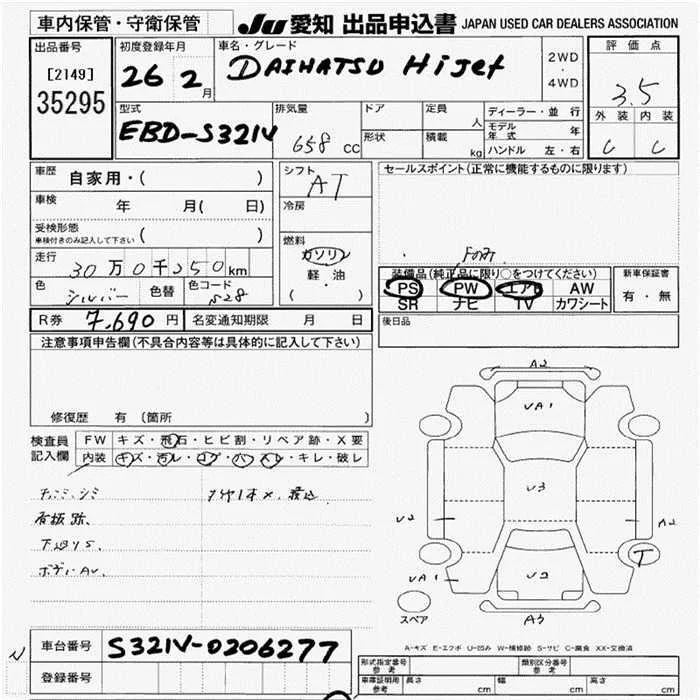 車内保管・守衛保管 JU 愛知 出品申込書 JAPAN USED CAR DEALERS ASSOCIATION
出品番号 初度登録年月 車名・グレード 評価点
[2149] 26 2月 DAIHATSU HiJet 2WD・4WD 3.5
35295
型式 排気量 ドア 定員 人 ディーラー・並行 外装 内装
EBD-S321V 658 cc 形状 積載 kg モデル年式 年 C C
ハンドル 左・右
車歴 自家用・( ) シフト AT セールスポイント(正常に機能するものに限ります)
車検 年 月( 日) 冷房
受検形態 ( )
車検付きのみ記入して下さい
走行 30万0千250km 燃料 ガソリン 軽・油 ( ) 装備品(純正品に限り○をつけてください) 新車保証書
色 シルバー 色替 色コード S28 PS PW エアB AW 有・無
SR ナビ TV カワシート
R券 7,690 円 名変通知期限 月 日 後日品
注意事項申告欄(不具合内容等は具体的に記入して下さい)
修復歴 有(箇所 )
検査員記入欄 FW キズ・飛石・ヒビ割・リペア跡・X要
内装 キズ・汚レ・コゲ・穴・スレ・キレ・破レ
A2
UA1
U3
U2
A2
T
UA1
U2
A3
スペア
A-キズ E-エクボ U-凹み W-補修跡 S-サビ C-腐食 XX-交換済
車台番号 S321V-0206277
登録番号
形式指定番号 参考 類別区分番号 参考
車庫証明用 参考 長さ cm 幅 cm 高さ cm